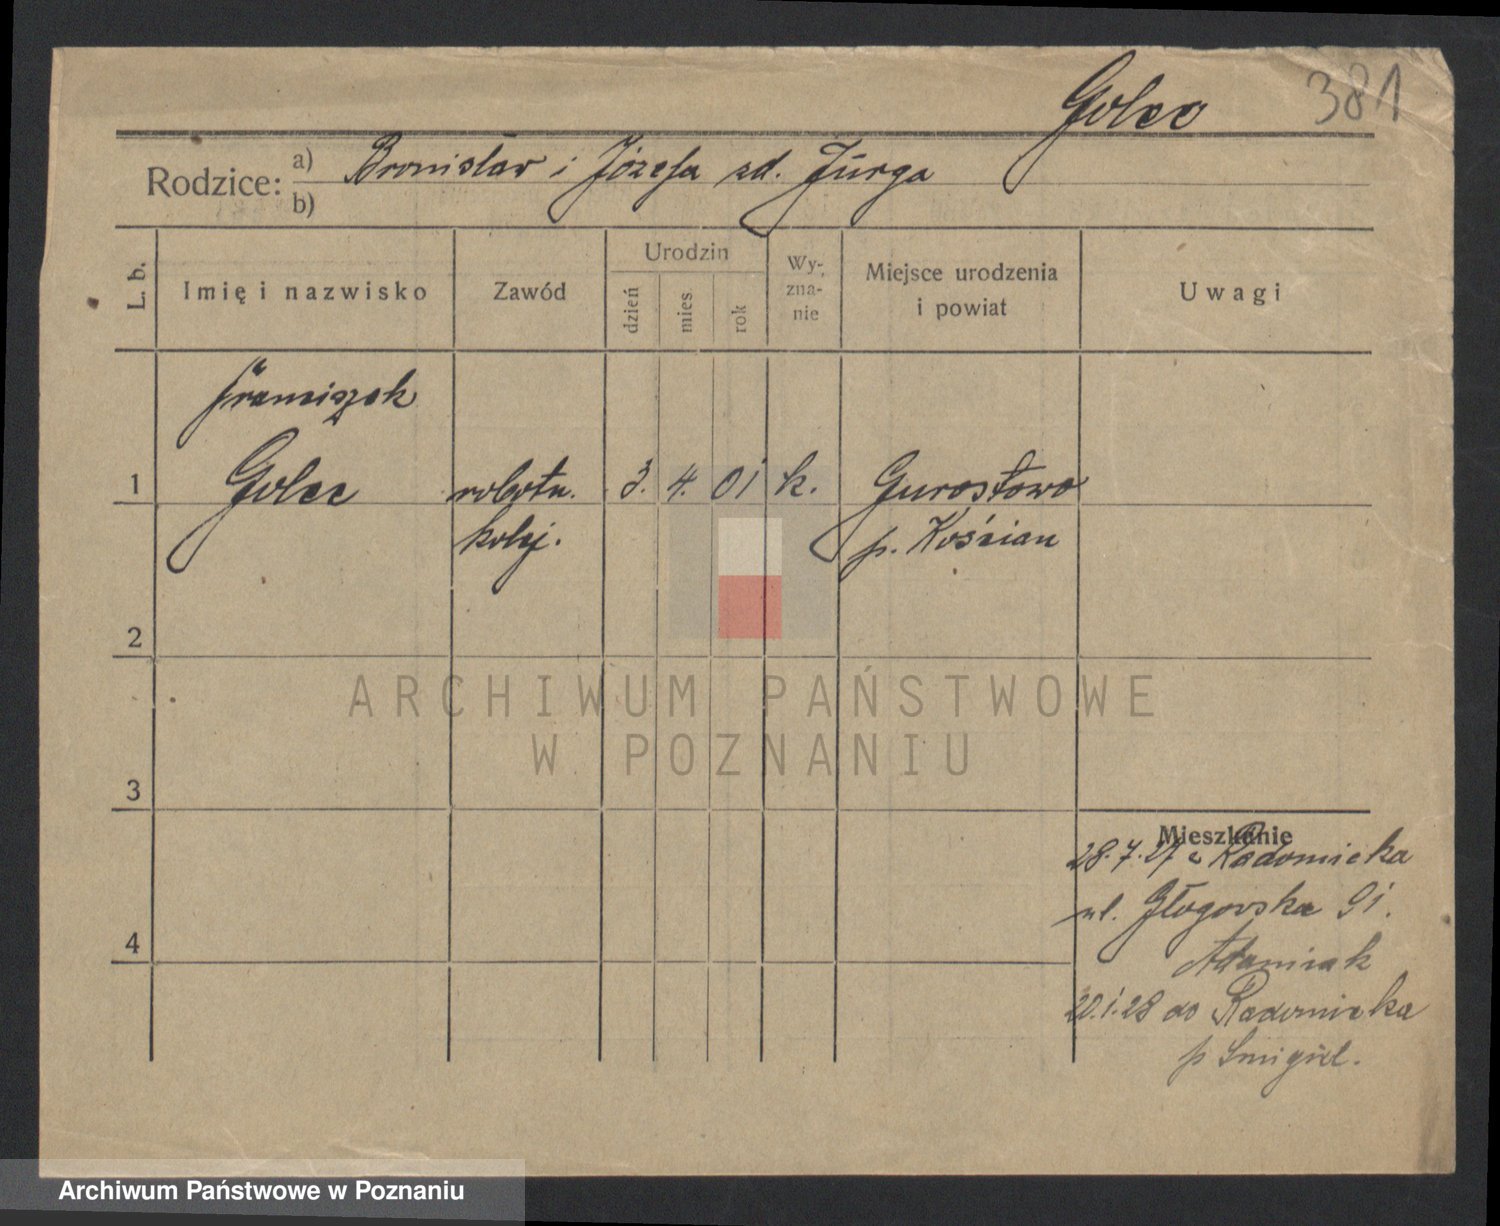 Golec 381
Rodzice: a) Bronisław i Józefa zd. Jurga
b)
L. b. Imię i nazwisko Zawód Urodzin dzień mies. rok Wy-zna-nie Miejsce urodzenia i powiat Uwagi
Franciszek
1 Golec robotn. 3. 4. 01 k. Gurostowo
kolej. p. Kościan
2
ARCHIWUM PAŃSTWOWE
W POZNANIU
3
Mieszkanie
28.7.27 z Radomicka
ul. Głogowska 91.
4
Adamiak
20.1.28 do Radomicka
p Smigiel.
Archiwum Państwowe w Poznaniu